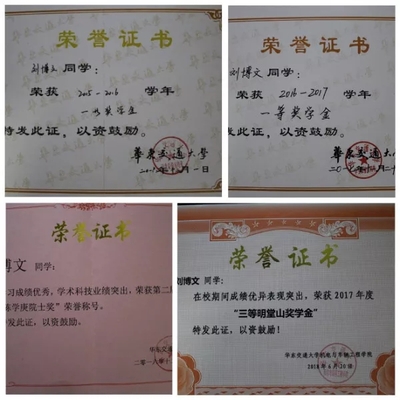 荣誉证书
刘博文同学:
荣获 2015-2016 学年
一等奖学金
特发此证,以资鼓励。
華東交通大學
荣誉证书
刘博文同学:
荣获 2016-2017 学年
一等奖学金
特发此证,以资鼓励。
華東交通大學
荣誉证书
博文 同学:
习成绩优秀,学术科技业绩突出,荣获第二
学庚院士奖”荣誉称号。
发此证,以资鼓励。
华东交
二零一八年
荣誉证书
刘博文 同学:
在校期间成绩优异表现突出,荣获2017年度
“三等明堂山奖学金”
特发此证,以资鼓励!
华东交通大学机电与车辆工程学院
2018年6月20日